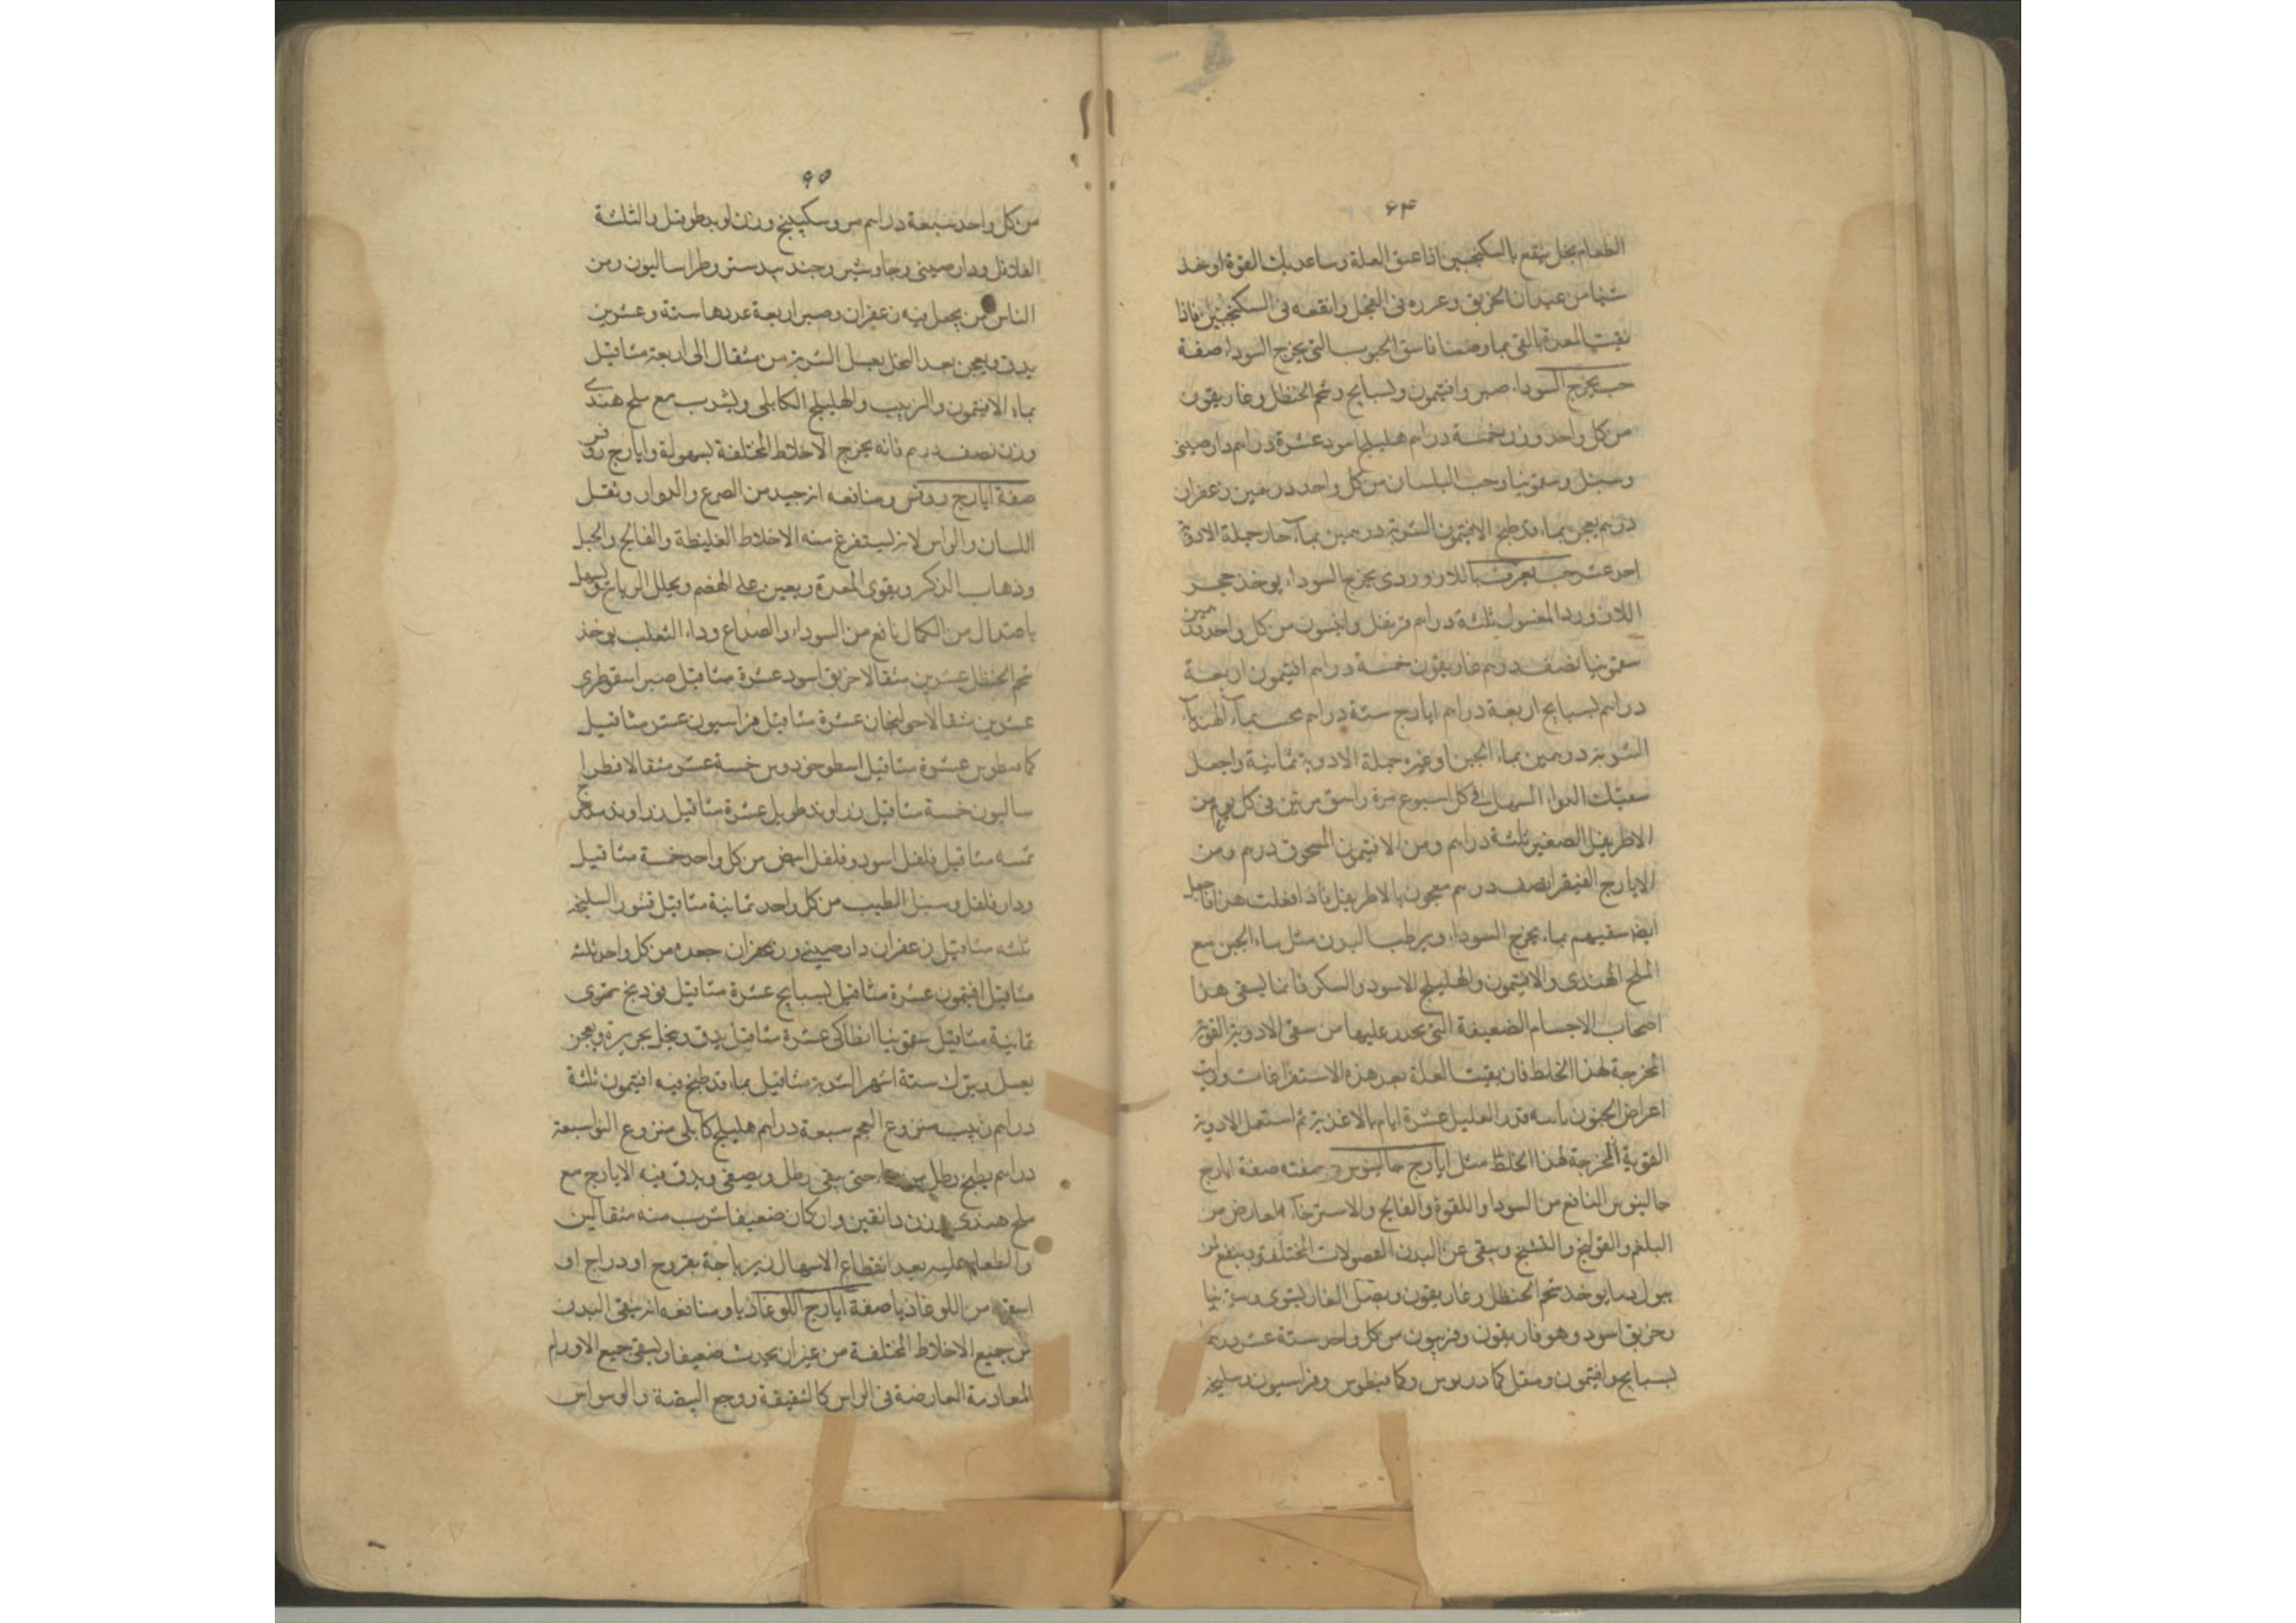 ۶۴
الطعام بخل ينقع بالسكنجبين فاذا عتق العلة وساعدتك القوة اوخذ
شيئا من عيدان الخربق وغرزه فى الفجل وانقعه فى السكنجبين فاذا
نقيت المعدة بالقى بما وصفنا فاسق الحبوب التى يخرج السودا صفة
حب يخرج السوداء صبر وافتيمون وبسبايج وشحم الحنظل وغاريقون
من كل واحد وزن خمسة دراهم هليلج اسود عشرة دراهم دارصينى
وسنبل وسقمونيا وحب البلسان من كل واحد درهمين زعفران
درهم يعجن بماء قد طبخ الافتيمون الشربة درهمين بماء حار جملة الادوية
احد عشر حب يعرف باللازوردى يخرج السوداء يوخذ حجر
اللازورد المغسول ثلثة دراهم قرنفل وانيسون من كل واحد درهمين
سقمونيا نصف درهم غاريقون خمسة دراهم افتيمون اربعة
دراهم بسبايج اربعة دراهم ايارج ستة دراهم يحبب بماء الهندباء
الشربة درهمين بماء الجبن او غيره جملة الادوية ثمانية واجعل
سقيك الدواء المسهل فى كل اسبوع مرة واسق مرتين فى كل يوم من
الاطريفل الصغير ثلثة دراهم ومن الافتيمون المسحوق درهم ومن
الايارج الفيقرا نصف درهم معجون بالاطريفل فاذا فعلت هذا فاجعل
ايضا سقيهم بماء يخرج السوداء ويرطب البدن مثل ماء الجبن مع
الملح الهندى والافتيمون والهليلج الاسود والسكر فانما يسقى هذا
اصحاب الاجسام الضعيفة التى يحذر عليها من سقى الادوية القوية
المخرجة لهذا الخلط فان بقيت العلة بعد هذه الاستفراغات ورايت
اعراض الجنون قدر العليل عشرة ايام بالاغذية ثم استعمل الادوية
القوية المخرجة لهذا الخلط مثل ايارج جالينوس صفة ايارج
جالينوس النافع من السودا واللقوة والفالج والاسترخاء العارض من
البلغم والقولنج والتشنج وينقى عن البدن الفضولات المختلفة وينفع لمن
يبول دما يوخذ شحم الحنظل وغاريقون وبصل الفار مشوى وسقمونيا
وخربق اسود وهوفاريقون وفربيون من كل واحد ستة عشر درهما
بسبايج وافتيمون ومقل كمادريوس وكمافيطوس وفراسيون وسليخه
۶۵
من كل واحد سبعة دراهم مر وسكبينج وزراوند طويل والثلثة
الفلافل ودارصينى وجاوشير وجندبيدستر وفطراساليون ومن
الناس من يجعل فيه زعفران وصبر اربعة عددها ستة وعشرين
يدق ويعجن بعد النخل بعسل الشربة من مثقال الى اربعة مثاقيل
بماء الافتيمون والزبيب والهليلج الكابلى ويشرب مع ملح هندى
وزن نصف درهم فانه يخرج الاخلاط المختلفة بسهولة وايارج روفس
صفة ايارج روفس ومنافعه انه جيد من الصرع والدوار وثقل
اللسان والراس لانه يستفرغ منه الاخلاط الغليظة والفالج والخبل
وذهاب الذكر ويقوى المعدة ويعين على الهضم ويحلل الرياح ويسهل
باعتدال من الكمال نافع من السوداء والصداع وداء الثعلب يوخذ
شحم الحنظل عشرين مثقالا خربق اسود عشرة مثاقيل صبر اسقوطرى
عشرين مثقالا خولنجان عشرة مثاقيل فراسيون عشر مثاقيل
كمافيطوس عشرة مثاقيل اسطوخودوس خمسة عشر مثقالا فطرا
ساليون خمسة مثاقيل زراوند طويل عشرة مثاقيل زراوند مدحرج
خمسه مثاقيل فلفل اسود وفلفل ابيض من كل واحد خمسة مثاقيل
ودارفلفل وسنبل الطيب من كل واحد ثمانية مثاقيل قشور السليخه
ثلثه مثاقيل زعفران دارصينى جعده من كل واحد ثلثه
مثاقيل افتيمون عشرة مثاقيل بسبايج عشرة مثاقيل فودنج
ثمانية مثاقيل سقمونيا انطاكى عشرة مثاقيل يدق وينخل بحريرة ويعجن
بعسل ويترك ستة اشهر الشربة مثاقيل بماء قد طبخ فيه افتيمون ثلثة
دراهم زبيب منزوع العجم سبعة دراهم هليلج كابلى منزوع النوا سبعة
دراهم يطبخ رطلين حتى يبقى رطل ويصفى ويدق فيه الايارج مع
ملح هندى وزن دانقين وان كان ضعيفا شرب منه مثقالين
والطعام عليه بعد انقطاع الاسهال زيرباجة بفروج او دراج او
اسقه من اللوغاذيا صفة ايارج اللوغاذيا ومنافعه انه ينقى البدن
من جميع الاخلاط المختلفة من غير ان يحدث ضعيفا وينقى جميع الاورام
العارضة فى الراس كالشقيقة ووجع البيضة والوسواس